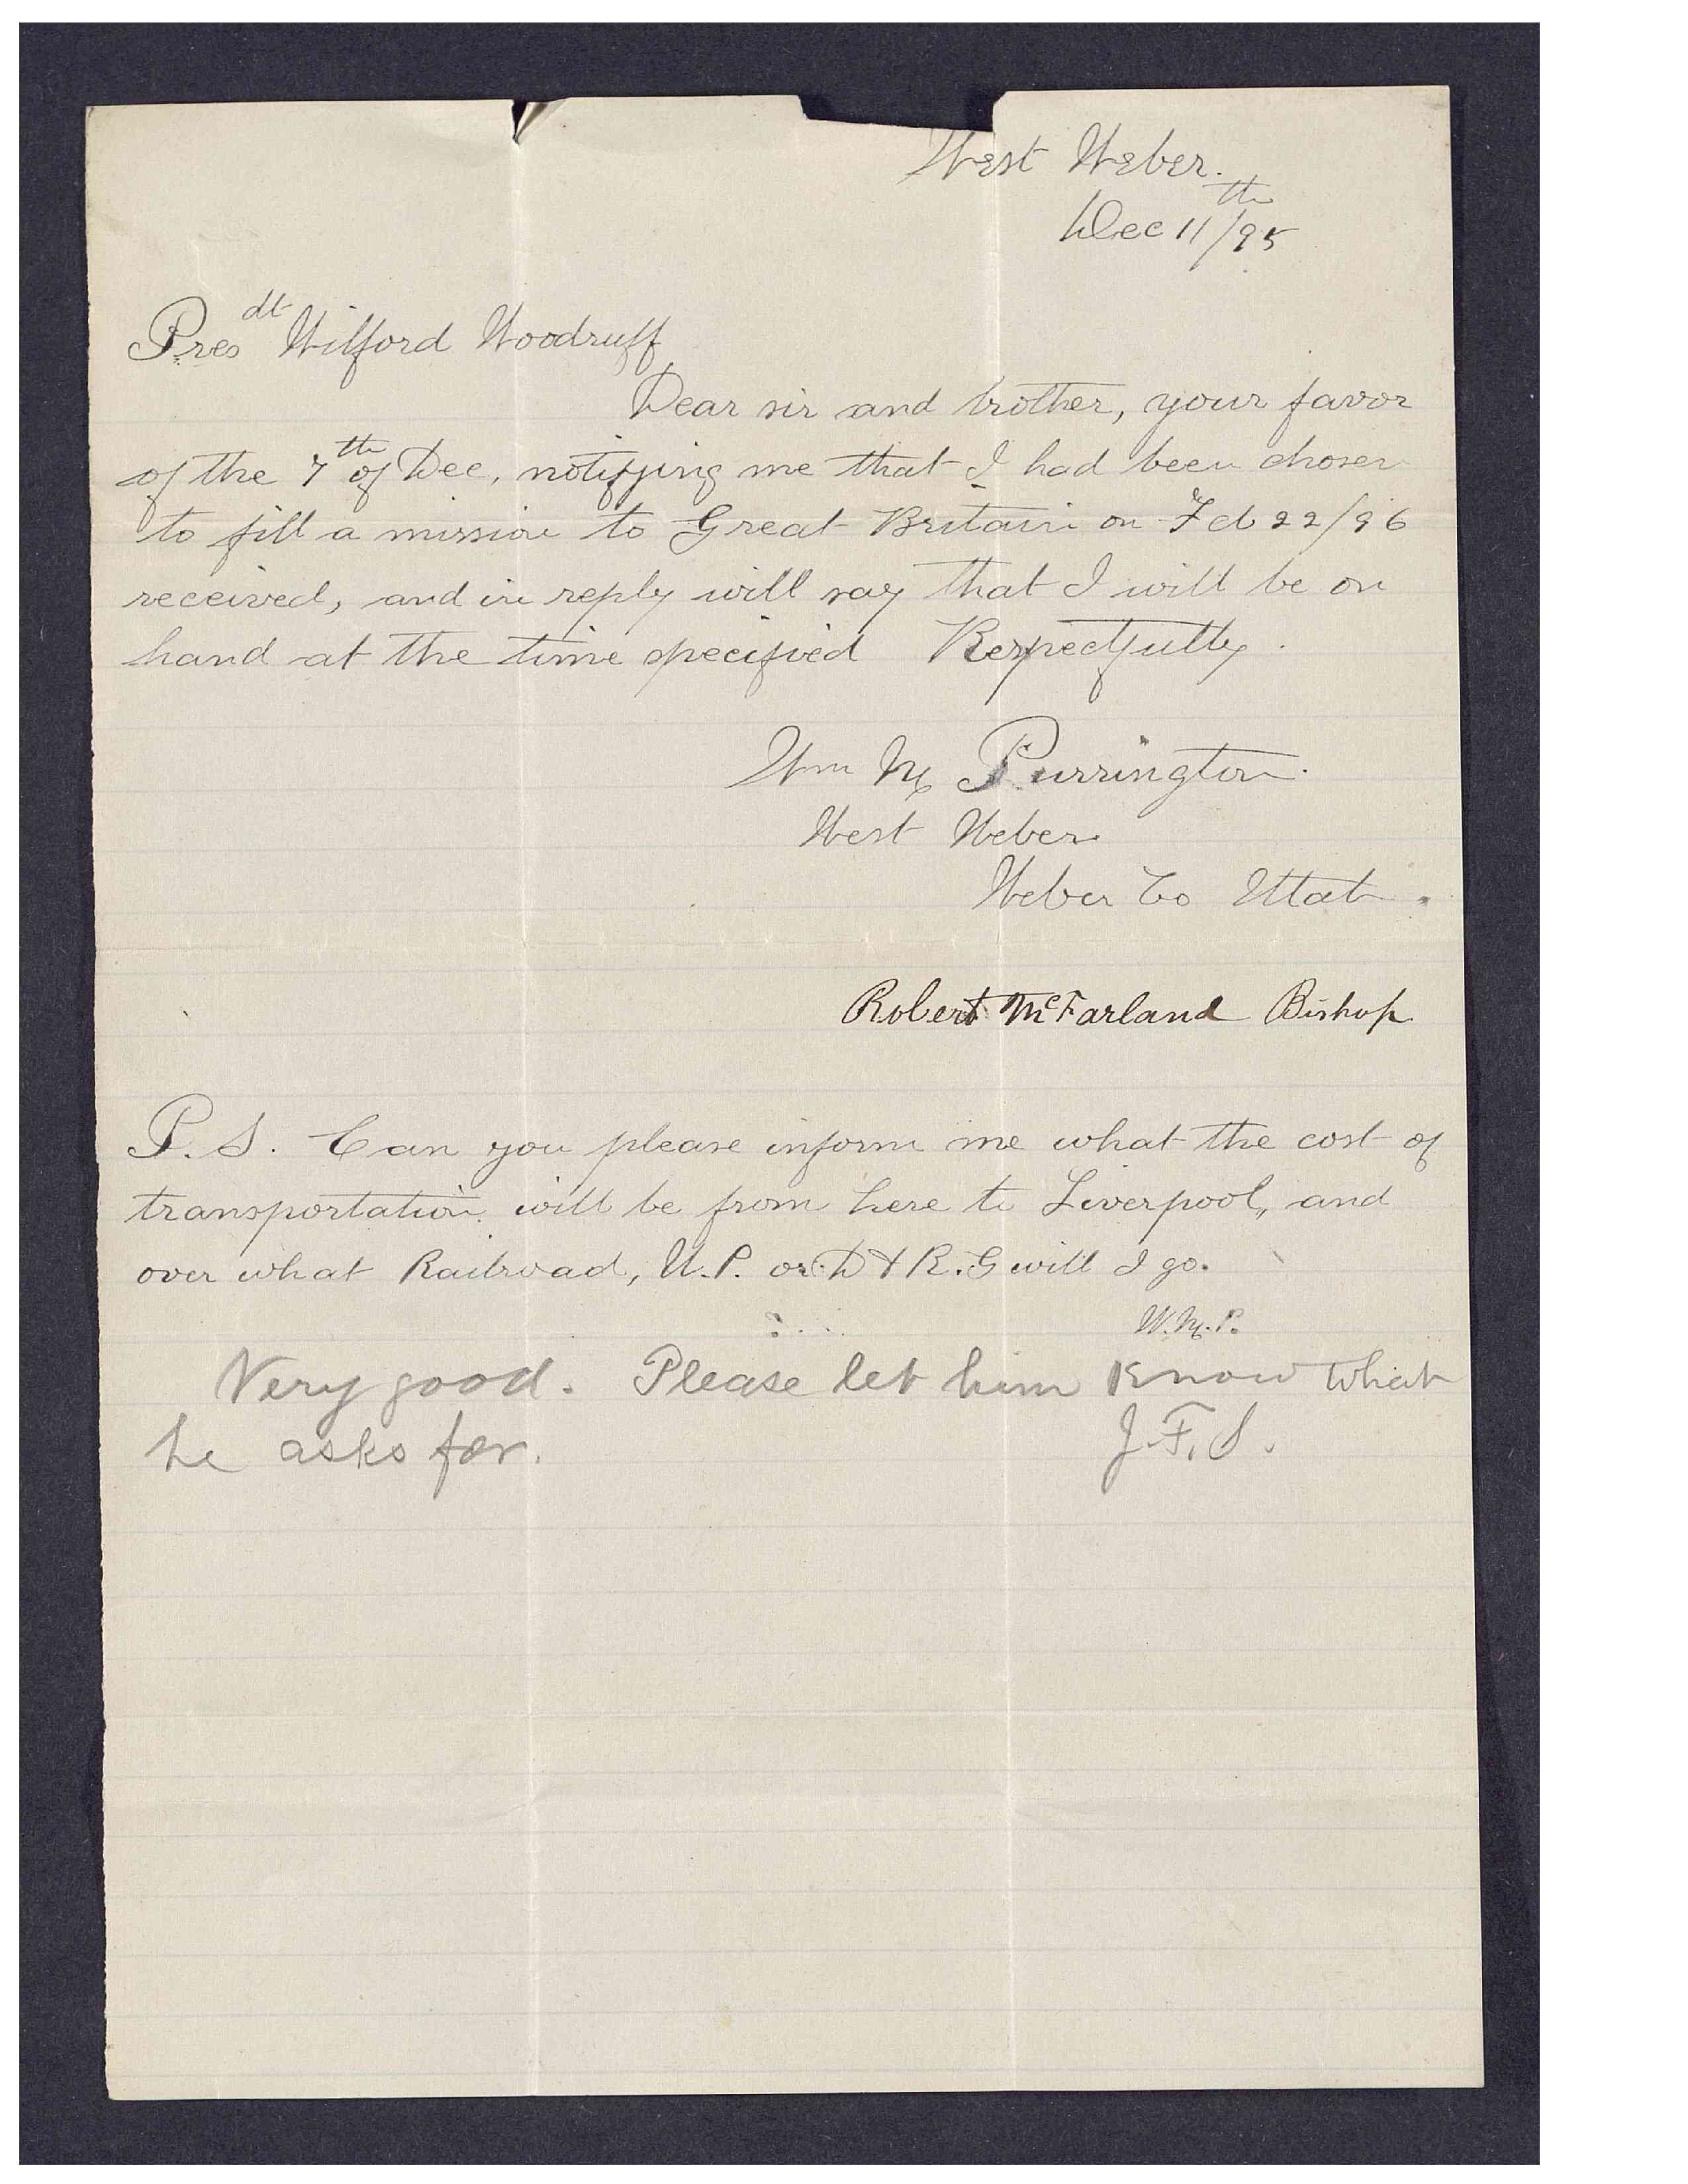 West Weber.
Dec 11th/95
Presdt Wilford Woodruff
Dear sir and brother, your favor
of the 7th of Dec, notifying me that I had been chosen
to fill a mission to Great Britain on Feb 22/96
received, and in reply will say that I will be on
hand at the time specified Respectfully.
Wm M Purrington.
West Weber
Weber Co Utah.
Robert McFarland Bishop
P.S. Can you please inform me what the cost of
transportation will be from here to Liverpool, and
over what Railroad, U.P. or D & R.G will I go.
W.M.P.
Very good. Please let him know what
he asks for. J.F.S.